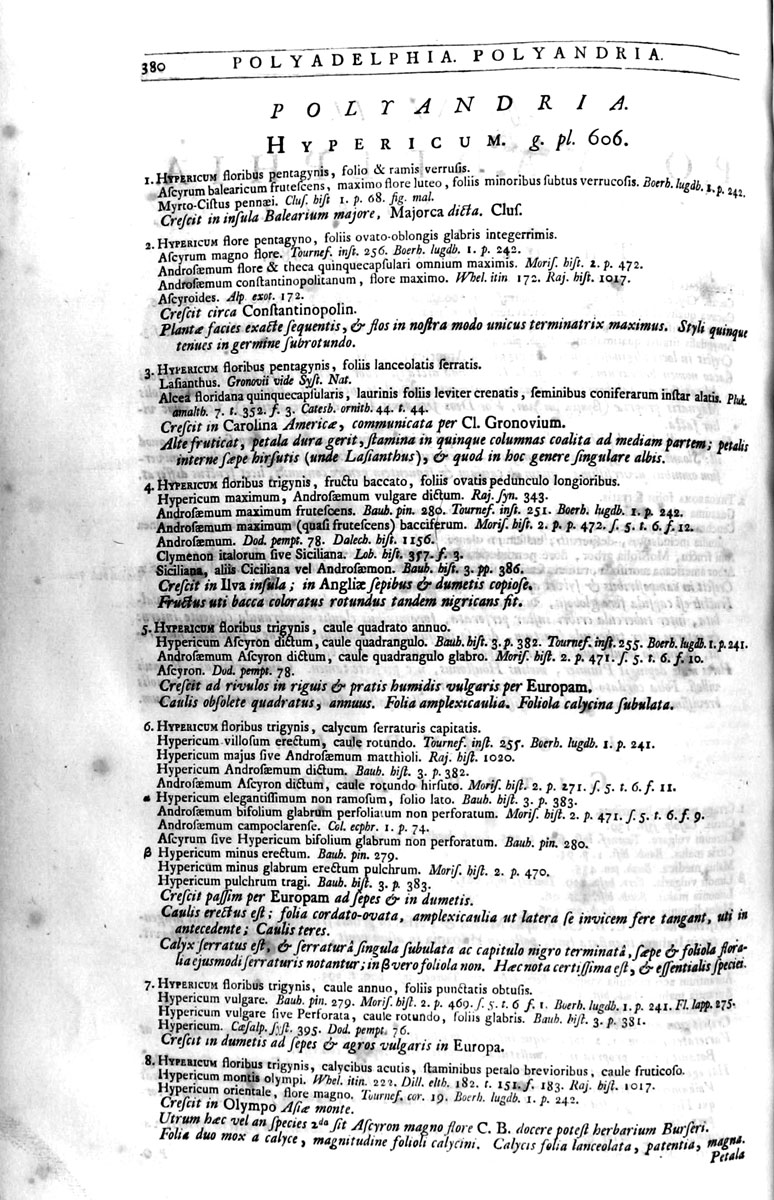 380 POLYADELPHIA. POLYANDRIA.
POLYANDRIA.
HYPERICUM. g. pl. 606.
1. HYPERICUM floribus pentagynis, folio & ramis verrusis.
Aſcyrum balearicum fruteſcens, maximo flore luteo, foliis minoribus ſubtus verrucoſis. Boerh. lugdb. 1. p. 242.
Myrto-Ciſtus pennæi. Cluſ. hiſt 1. p. 68. fig. mal.
Creſcit in inſula Balearium majore, Majorca dicta. Cluſ.
2. HYPERICUM flore pentagyno, foliis ovato-oblongis glabris integerrimis.
Aſcyrum magno flore. Tournef. inſt. 256. Boerh. lugdb. 1. p. 242.
Androſæmum flore & theca quinquecapſulari omnium maximis. Moriſ. hiſt. 2. p. 472.
Androſæmum conſtantinopolitanum, flore maximo. Whel. itin 172. Raj. hiſt. 1017.
Aſcyroides. Alp. exot. 172.
Creſcit circa Conſtantinopolin.
Plantæ facies exacte ſequentis, & flos in noſtra modo unicus terminatrix maximus. Styli quinque
tenues in germine ſubrotundo.
3. HYPERICUM floribus pentagynis, foliis lanceolatis ſerratis.
Laſianthus. Gronovii vide Syſt. Nat.
Alcea floridana quinquecapſularis, laurinis foliis leviter crenatis, ſeminibus coniferarum inſtar alatis. Pluk.
amaltb. 7. t. 352. f. 3. Catesb. ornith. 44. t. 44.
Creſcit in Carolina Americæ, communicata per Cl. Gronovium.
Alte fruticat, petala dura gerit, ſtamina in quinque columnas coalita ad mediam partem; petalis
interne ſæpe hirſutis (unde Laſianthus), & quod in hoc genere ſingulare albis.
4. HYPERICUM floribus trigynis, fructu baccato, foliis ovatis pedunculo longioribus.
Hypericum maximum, Androſæmum vulgare dictum. Raj. ſyn. 343.
Androſæmum maximum fruteſcens. Baub. pin. 280. Tournef. inſt. 251. Boerh. lugdb. 1. p. 242.
Androſæmum maximum (quaſi fruteſcens) bacciferum. Moriſ. hiſt. 2. p. p. 472. ſ. 5. t. 6. f. 12.
Androſæmum. Dod. pempt. 78. Dalech. hiſt. 1156.
Clymenon italorum ſive Siciliana. Lob. hiſt. 357. f. 3.
Siciliana, aliis Ciciliana vel Androſæmon. Baub. hiſt. 3. pp. 386.
Creſcit in Ilva inſula; in Angliæ ſepibus & dumetis copioſe.
Fructus uti bacca coloratus rotundus tandem nigricans fit.
5. HYPERICUM floribus trigynis, caule quadrato annuo.
Hypericum Aſcyron dictum, caule quadrangulo. Baub. hiſt. 3. p. 382. Tournef. inſt. 255. Boerh. lugdb. 1. p. 241.
Androſæmum Aſcyron dictum, caule quadrangulo glabro. Moriſ. hiſt. 2. p. 471. ſ. 5. t. 6. f. 10.
Aſcyron. Dod. pempt. 78.
Creſcit ad rivulos in riguis & pratis humidis vulgaris per Europam.
Caulis obſolete quadratus, annuus. Folia amplexicaulia. Foliola calycina ſubulata.
6. HYPERICUM floribus trigynis, calycum ſerraturis capitatis.
Hypericum villoſum erectum, caule rotundo. Tournef. inſt. 255. Boerh. lugdb. 1. p. 241.
Hypericum majus ſive Androſæmum matthioli. Raj. hiſt. 1020.
Hypericum Androſæmum dictum. Baub. hiſt. 3. p. 382.
Androſæmum Aſcyron dictum, caule rotundo hirſuto. Moriſ. hiſt. 2. p. 271. ſ. 5. t. 6. f. 11.
Hypericum elegantiſſimum non ramoſum, folio lato. Baub. hiſt. 3. p. 383.
Androſæmum bifolium glabrum perfoliatum non perforatum. Moriſ. hiſt. 2. p. 471. ſ. 5. t. 6. f. 9.
Androſæmum campoclarenſe. Col. ecphr. 1. p. 74.
Aſcyrum ſive Hypericum bifolium glabrum non perforatum. Baub. pin. 280.
β Hypericum minus erectum. Baub. pin. 279.
Hypericum minus glabrum erectum pulchrum. Moriſ. hiſt. 2. p. 470.
Hypericum pulchrum tragi. Baub. hiſt. 3. p. 383.
Creſcit paſſim per Europam ad ſepes & in dumetis.
Caulis erectus eſt; folia cordato-ovata, amplexicaulia ut latera ſe invicem fere tangant, uti in
antecedente; Caulis teres.
Calyx ſerratus eſt, & ſerraturâ ſingula ſubulata ac capitulo nigro terminatâ, ſæpe & foliola flora-
lia ejusmodi ſerraturis notantur; in β vero foliola non. Hæc nota certiſſima eſt, & eſſentialis ſpeciei.
7. HYPERICUM floribus trigynis, caule annuo, foliis punctatis obtuſis.
Hypericum vulgare. Baub. pin. 279. Moriſ. hiſt. 2. p. 469. ſ. 5. t. 6 f. 1. Boerh. lugdb. 1. p. 241. Fl. lapp. 275.
Hypericum vulgare ſive Perforata, caule rotundo, foliis glabris. Baub. hiſt. 3. p. 381.
Hypericum. Cæſalp. ſyſt. 395. Dod. pempt. 76.
Creſcit in dumetis ad ſepes & agros vulgaris in Europa.
8. HYPERICUM floribus trigynis, calycibus acutis, ſtaminibus petalo brevioribus, caule fruticoſo.
Hypericum montis olympi. Whel. itin. 222. Dill. elth. 182. t. 151. f. 183. Raj. hiſt. 1017.
Hypericum orientale, flore magno. Tournef. cor. 19. Boerh. lugdb. 1. p. 242.
Creſcit in Olympo Aſiæ monte.
Utrum hæc vel an ſpecies 2da ſit Aſcyron magno flore C. B. docere poteſt herbarium Burſeri.
Folia duo mox a calyce, magnitudine folioli calycini. Calycis folia lanceolata, patentia, magna.
Petala